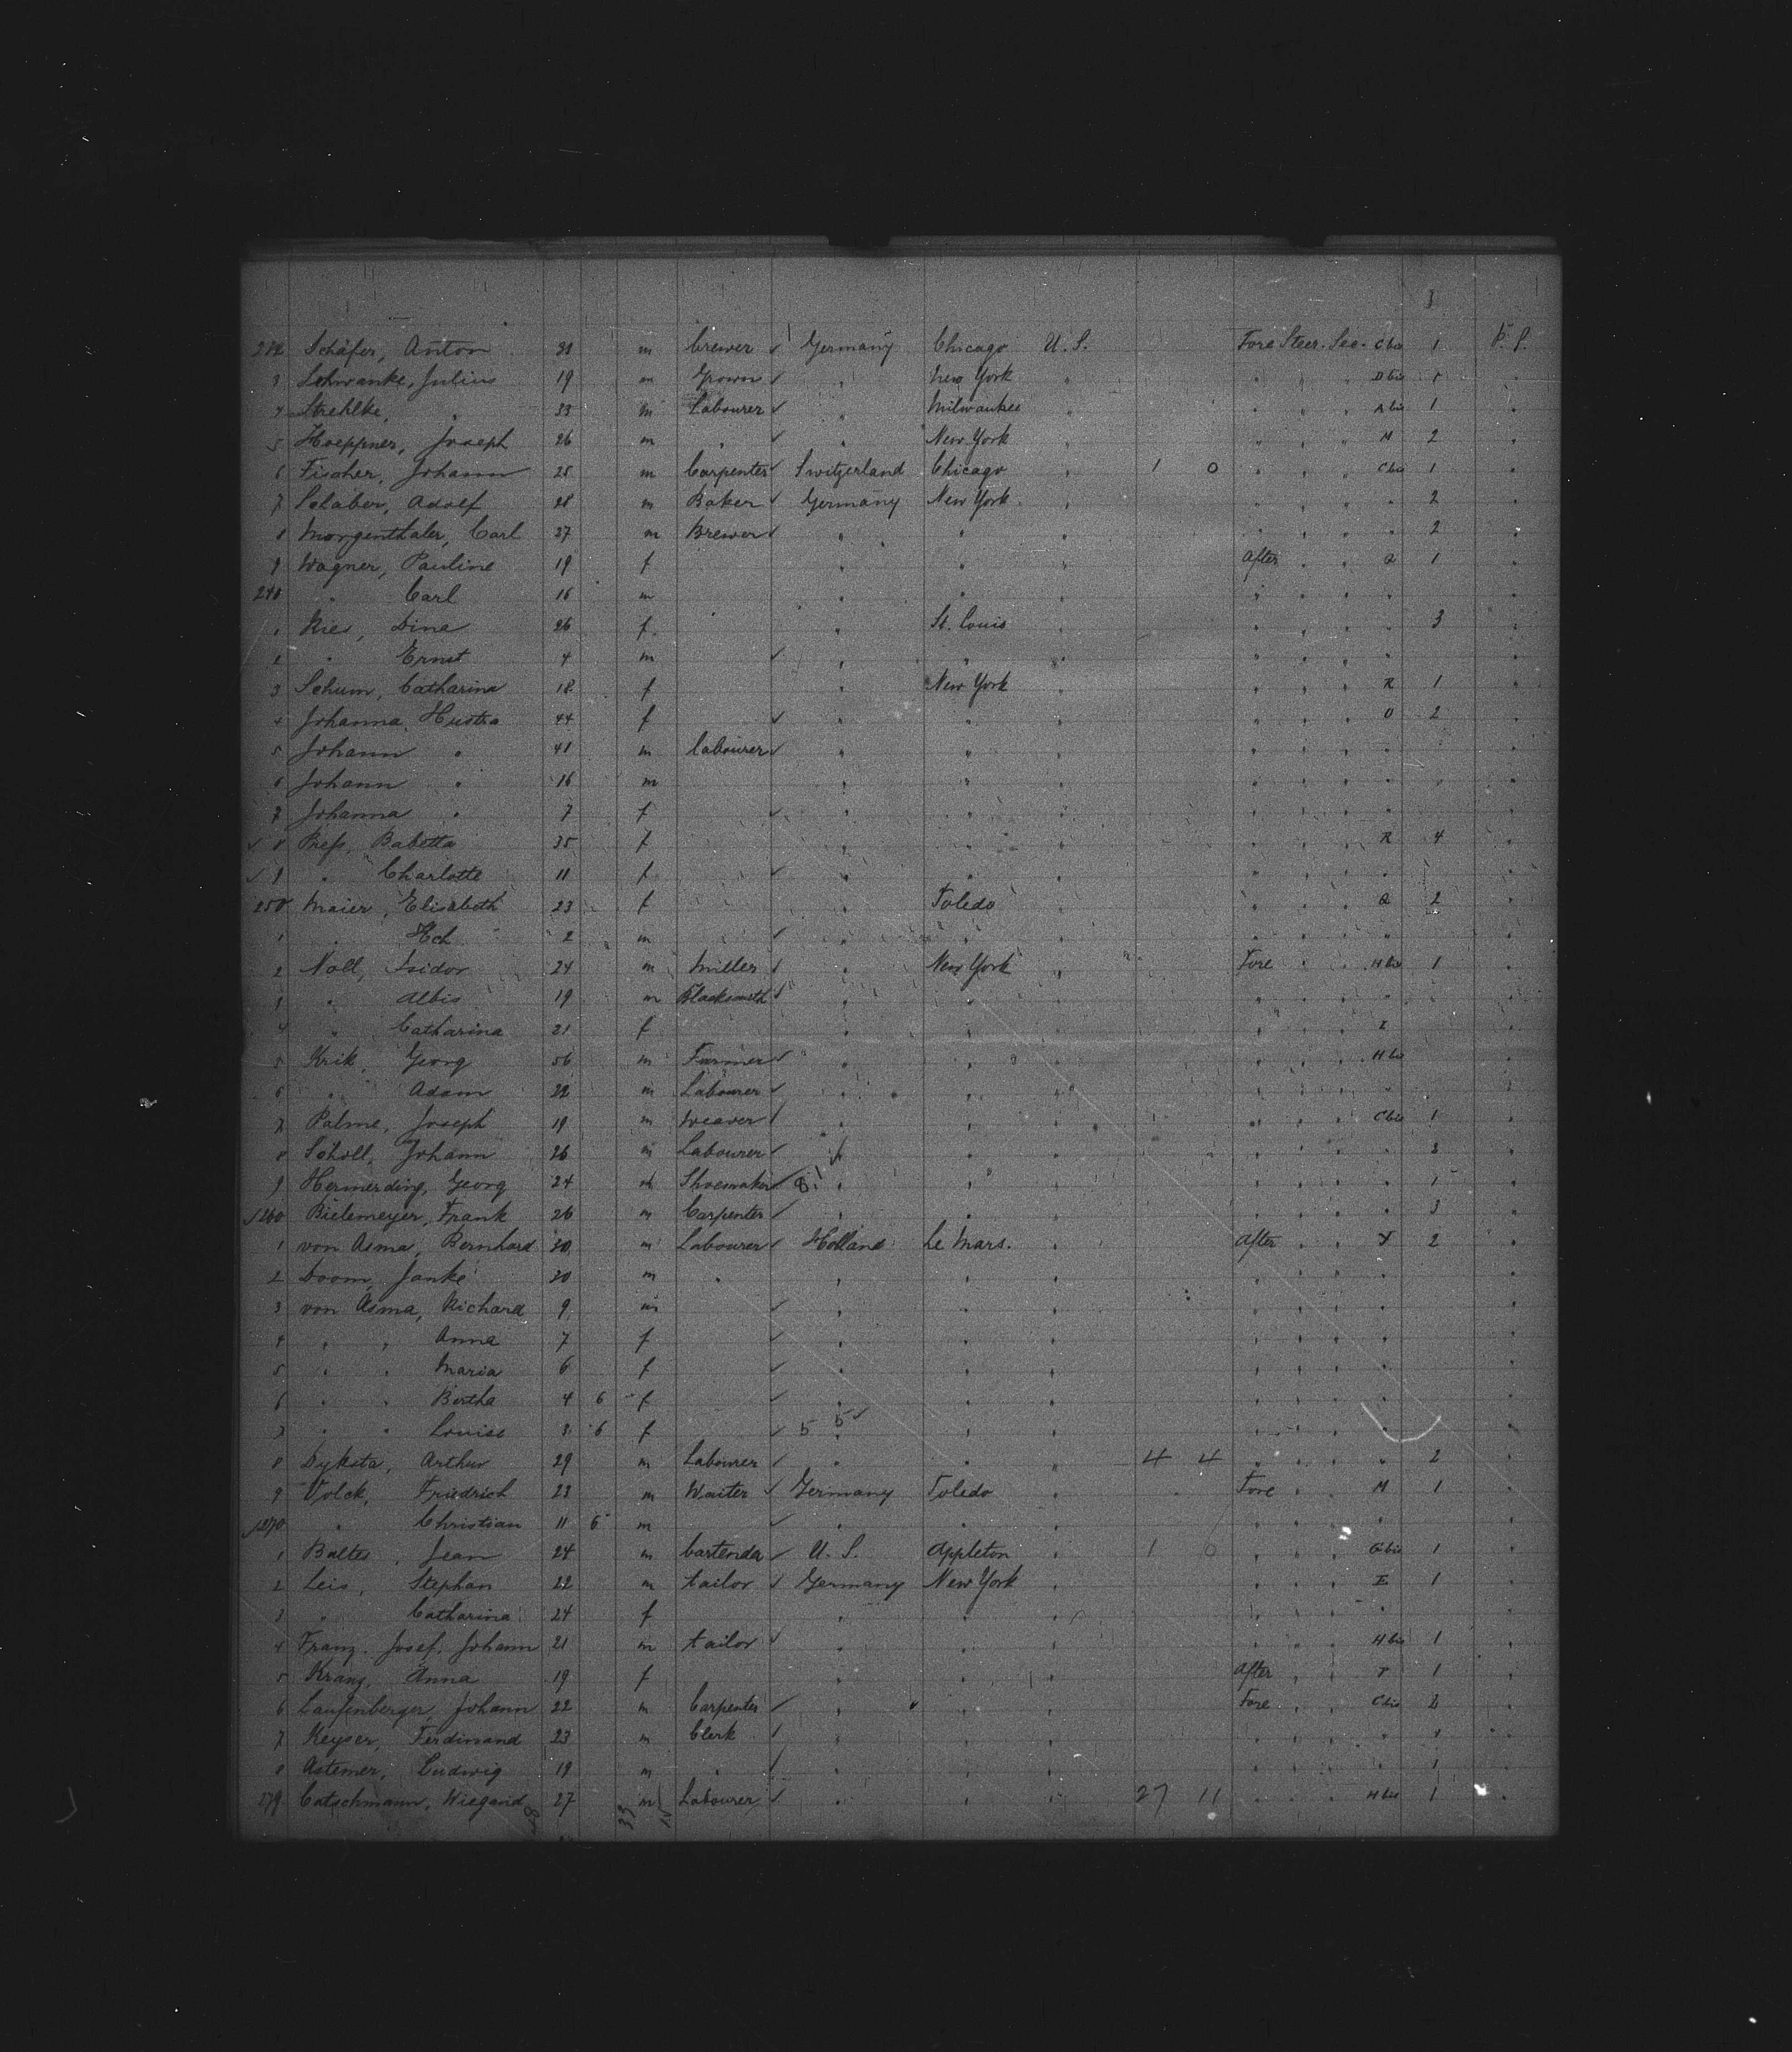 3
232 Schäfer, Anton 31 m brewer ✓ Germany Chicago U. S. Fore Steer. See. C bis 1 P. P.
3 Schwanke, Julius 19 m Groom ✓ " New York " " " " D bis " "
4 Strehlke, " 33 m Labourer ✓ " Milwaukee " " " " A bis 1 "
5 Hoeppner, Joseph 26 m " ✓ " New York " " " " M 2 "
6 Fischer, Johann 25 m Carpenter ✓ Switzerland Chicago " 1 0 " " " C bis 1 "
7 Adolf 28 m Baker ✓ Germany New York " " " " " 2 "
8 Morgenthaler, Carl 37 m Brewer ✓ " " " " " " " 2 "
9 Wagner, Pauline 19 f " " " After " " Q 1 "
240 " Carl 16 m " " " " " " " "
1 Ries, Dina 26 f " St. Louis " " " " " 3 "
2 " Ernst 4 m ✓ " " " " " " " "
3 Schum, Catharina 18 f " New York " " " " R 1 "
4 Johanna 44 f ✓ " " " " " " O 2 "
5 Johann " 41 m labourer ✓ " " " " " " " "
6 Johann " 16 m " " " " " " " "
7 Johanna " 7 f ✓ " " " " " " " "
✓ 8 Babetta 35 f " " " " " " R 4 "
✓ 9 " Charlotte 11 f ✓ " " " " " " " "
250 Maier, Elisabeth 23 f " Toledo " " " " Q 2 "
1 " Hch 2 m ✓ " " " " " " " "
2 Noll, Isidor 24 m miller ✓ " New York " Fore " " H bis 1 "
3 " Albis 19 m Blacksmith ✓ " " " " " " " "
4 " Catharina 21 f " " " " " " I "
5 Krik, Georg 56 m Farmer ✓ " " " " " " H bis "
6 " Adam 22 m Labourer ✓ " " " " " " " "
7 Palme, Joseph 19 m weaver ✓ " " " " " " C bis 1 "
8 Scholl, Johann 26 m Labourer ✓ " " " " " " " 3 "
9 Hermerding, Georg 24 m Shoemaker ✓ 8 1 " " " " " " " 1 "
✓ 260 Bielemeyer, Frank 26 m Carpenter ✓ " " " " " " " 3 "
1 von Asma, Bernhard 30 m Labourer ✓ Holland Le Mars. " After " " Y 2 "
2 Doom, Janke 20 m " " " " " " " " "
3 von Asma, Richard 9 m ✓ " " " " " " " "
4 " " Anna 7 f ✓ " " " " " " " "
5 " " Maria 6 f ✓ " " " " " " " "
6 " " Bertha 4 6 f ✓ " " " " " " " "
7 " " Louise 3 6 f ✓ 5 5 ✓ " " " " " " "
8 Dyksta, Arthur 29 m Labourer ✓ " " " 4 4 " " " " 2 "
9 Volck, Friedrich 23 m Waiter ✓ Germany Toledo " Fore " " M 1 "
✓ 270 " Christian 11 6 m ✓ " " " " " " " "
1 Baltes, Jean 24 m bartender ✓ U. S. Appleton " 1 0 " " " G bis 1 "
2 Leis, Stephan 22 m tailor ✓ Germany New York " " " " E 1 "
3 " Catharina 24 f " " " " " " " "
4 Franz. Josef. Johann 21 m tailor ✓ " " " " " " H bis 1 "
5 Kranz, Anna 19 f " " " After " " Y 1 "
6 Laufenberger, Johann 22 m Carpenter ✓ " " " Fore " " C bis "
7 Keyser, Ferdinand 23 m Clerk ✓ " " " " " " " "
8 Astemer, Ludwig 19 m " ✓ " " " " " " " 1 "
279 Catschmann, Wiegand 27 m Labourer ✓ " " " 27 11 " " " H bis 1 "
33